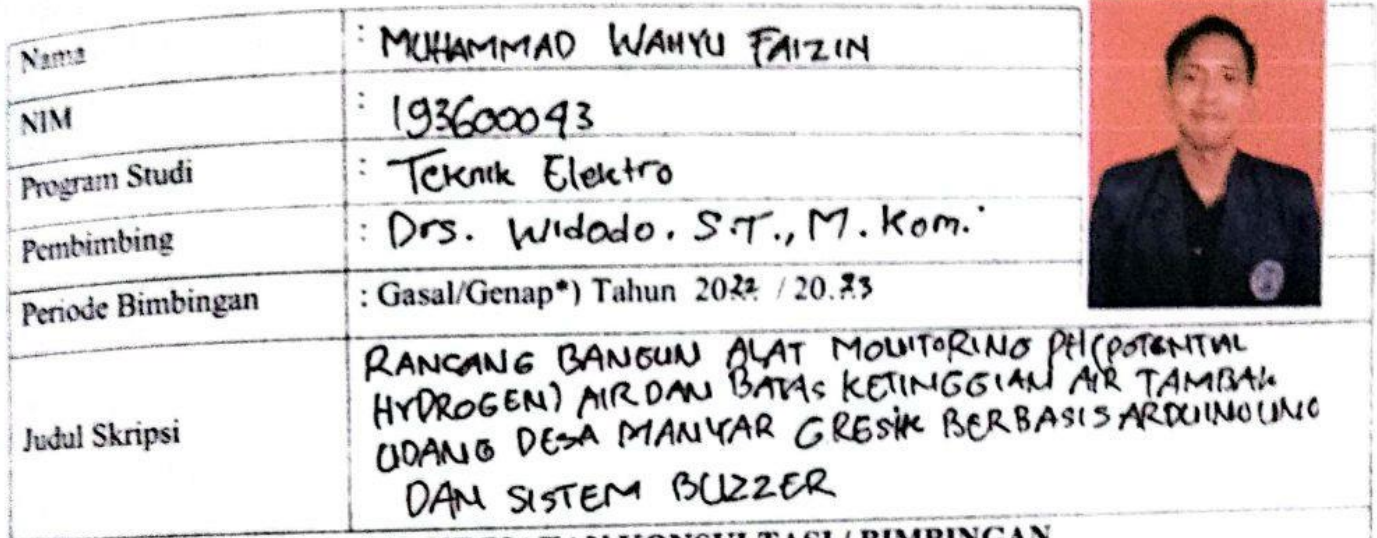 Nama : MUHAMMAD WAHYU FAIZIN
NIM : 193600093
Program Studi : Teknik Elektro
Pembimbing : Drs. Widodo. S.T., M. Kom.
Periode Bimbingan : Gasal/Genap*) Tahun 2022 / 20.23
Judul Skripsi : RANCANG BANGUN ALAT MONITORING PH (POTENTIAL
HYDROGEN) AIR DAN BATAS KETINGGIAN AIR TAMBAK
UDANG DESA MANYAR GRESIK BERBASIS ARDUINO UNO
DAN SISTEM BUZZER
KONSULTASI / BIMBINGAN